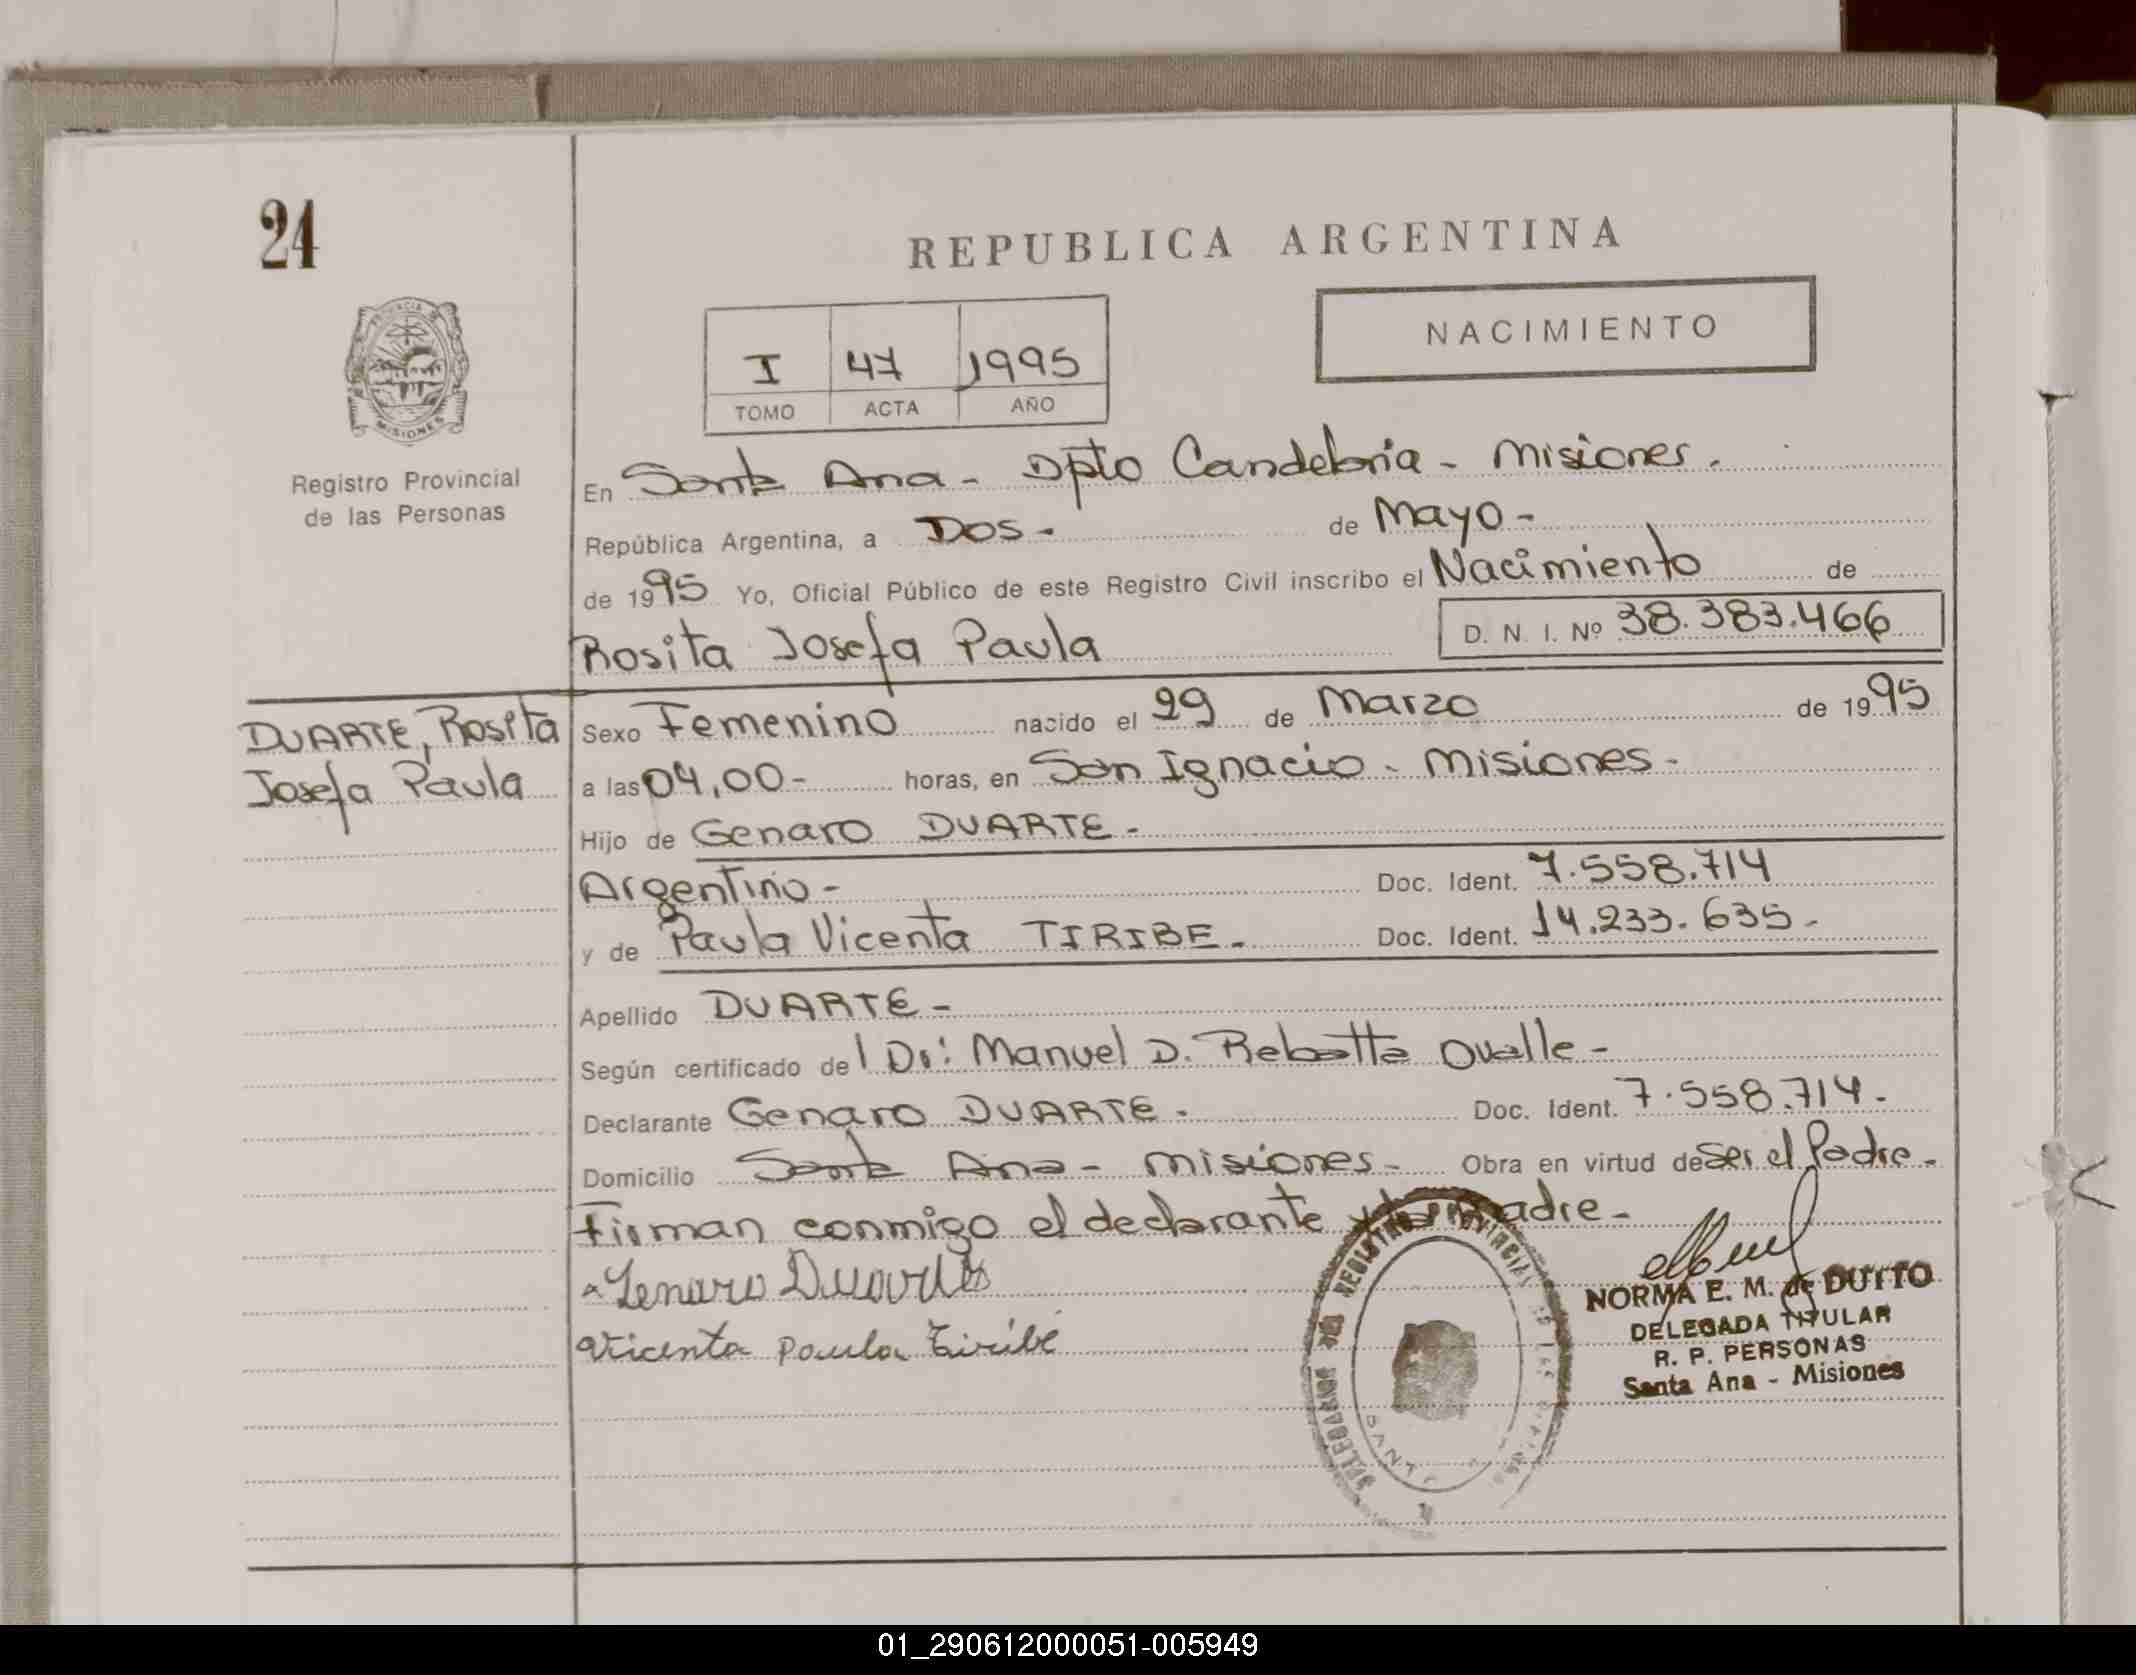 24
REPUBLICA ARGENTINA
PROVINCIA DE
MISIONES
NACIMIENTO
I 47 1995
TOMO ACTA AÑO
Registro Provincial
de las Personas
En Santa Ana - Dpto Candelaria - Misiones.
República Argentina, a Dos - de Mayo -
de 1995 Yo, Oficial Público de este Registro Civil inscribo el Nacimiento de
Rosita Josefa Paula D. N. I. Nº 38.383.466
DUARTE, Rosita
Josefa Paula
Sexo Femenino nacido el 29 de Marzo de 1995
a las 04,00- horas, en San Ignacio - Misiones -
Hijo de Genaro DUARTE -
Argentino - Doc. Ident. 7.558.714
y de Paula Vicenta TIRIBE - Doc. Ident. 14.233.635 -
Apellido DUARTE -
Según certificado del Dr: Manuel D. Rebatta Ovalle -
Declarante Genaro DUARTE - Doc. Ident. 7.558.714 -
Domicilio Santa Ana - Misiones - Obra en virtud de Ser el Padre -
Firman conmigo el declarante y la Madre -
Genaro Duarte
Vicenta Paula Tiribé
NORMA E. M. de DUTTO
DELEGADA TITULAR
R. P. PERSONAS
Santa Ana - Misiones
REGISTRO PROVINCIAL DE LAS
SANTA
01_290612000051-005949